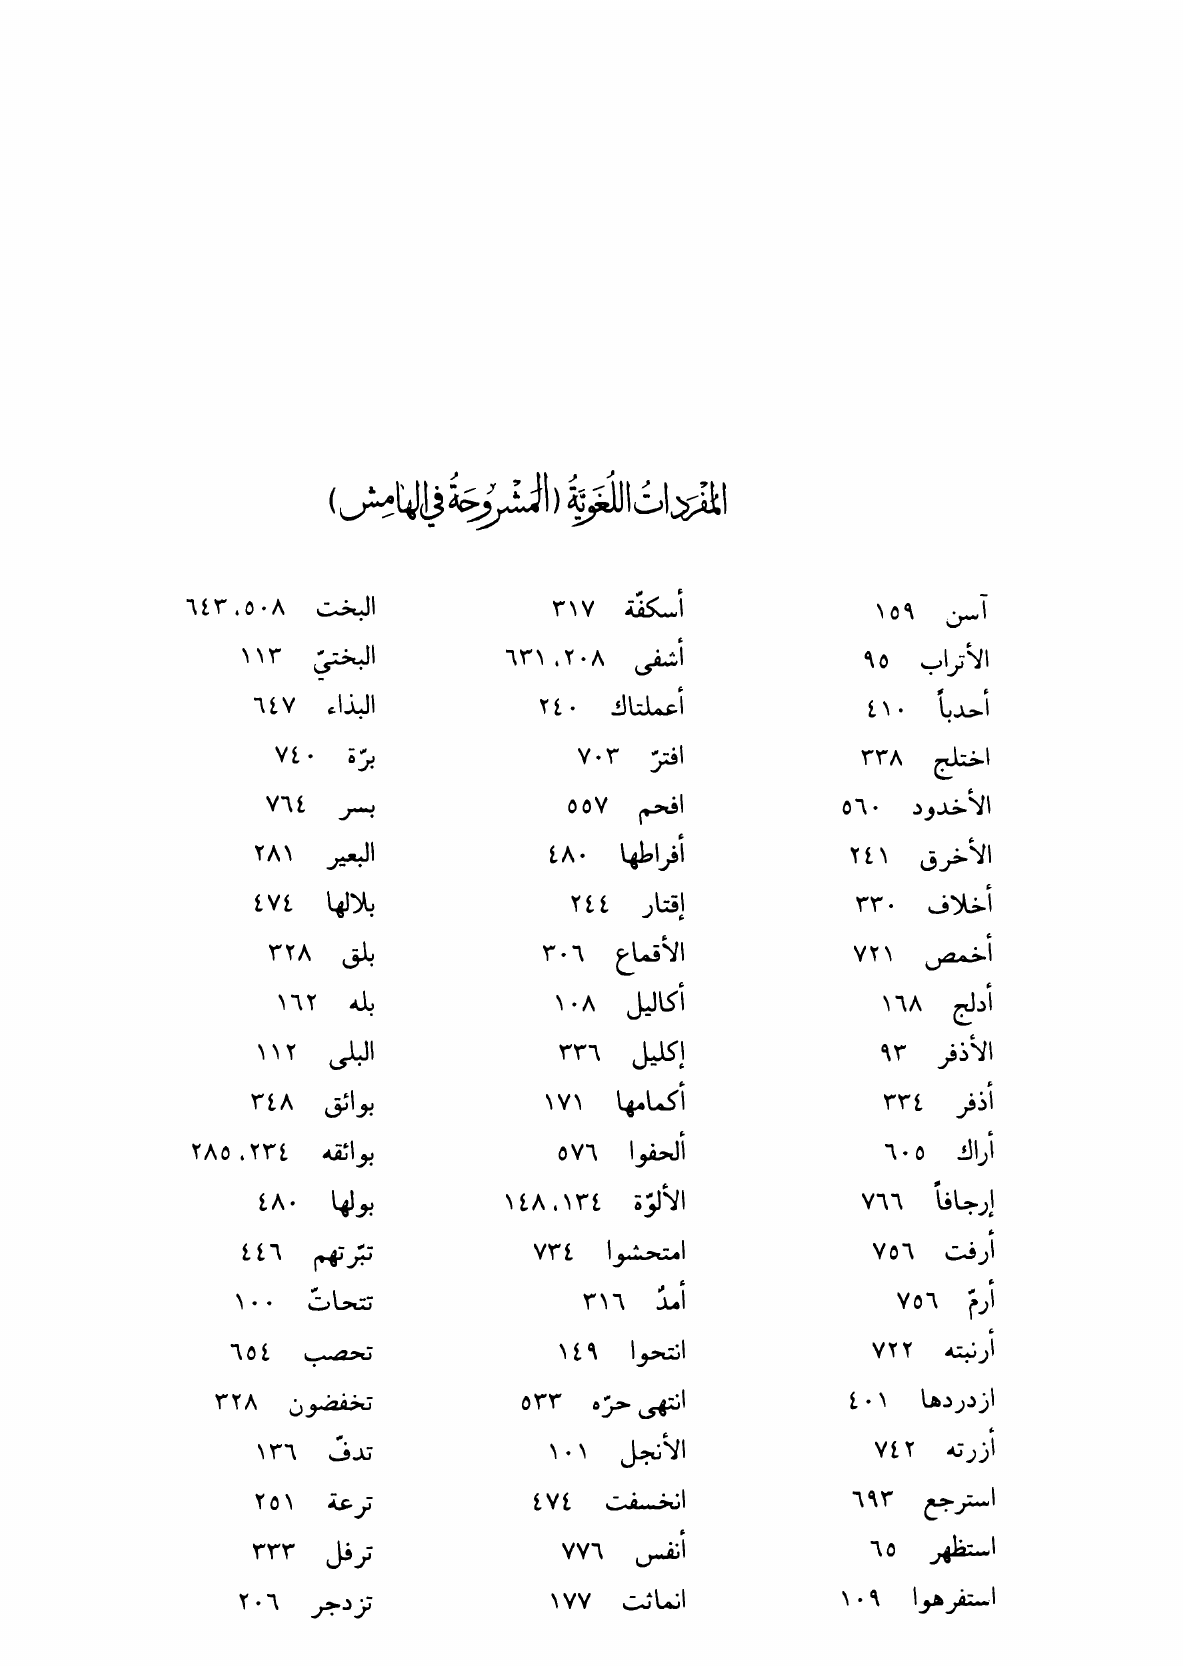 المفردات اللغوية (المشروحة في الهامش)
آسن ١٥٩
الأتراب ٩٥
أحدباً ٤١٠
اختلج ٣٣٨
الأخدود ٥٦٠
الأخرق ٢٤١
أخلاف ٣٣٠
أخمص ٧٢١
أدلج ١٦٨
الأذفر ٩٣
أذفر ٣٣٤
أراك ٦٠٥
إرجافاً ٧٦٦
أرفت ٧٥٦
أرمّ ٧٥٦
أرنبته ٧٢٢
ازدردها ٤٠١
أزرته ٧٤٢
استرجع ٦٩٣
استظهر ٦٥
استفرهوا ١٠٩
أسكفّة ٣١٧
أشفى ٢٠٨، ٦٣١
أعملتاك ٢٤٠
افترّ ٧٠٣
افحم ٥٥٧
أفراطها ٤٨٠
إقتار ٢٤٤
الأقماع ٣٠٦
أكاليل ١٠٨
إكليل ٣٣٦
أكمامها ١٧١
ألحفوا ٥٧٦
الألوّة ١٣٤، ١٤٨
امتحشوا ٧٣٤
أمدٌ ٣١٦
انتحوا ١٤٩
انتهى حرّه ٥٣٣
الأنجل ١٠١
انخسفت ٤٧٤
أنفس ٧٧٦
انماثت ١٧٧
البخت ٥٠٨، ٦٤٣
البختيّ ١١٣
البذاء ٦٤٧
برّة ٧٤٠
بسر ٧٦٤
البعير ٢٨١
بلالها ٤٧٤
بلق ٣٢٨
بله ١٦٢
البلى ١١٢
بوائق ٣٤٨
بوائقه ٢٣٤، ٢٨٥
بولها ٤٨٠
تبّرتهم ٤٤٦
تتحاتّ ١٠٠
تحصب ٦٥٤
تخفضون ٣٢٨
تدفّ ١٣٦
ترعة ٢٥١
ترفل ٣٣٣
تزدجر ٢٠٦